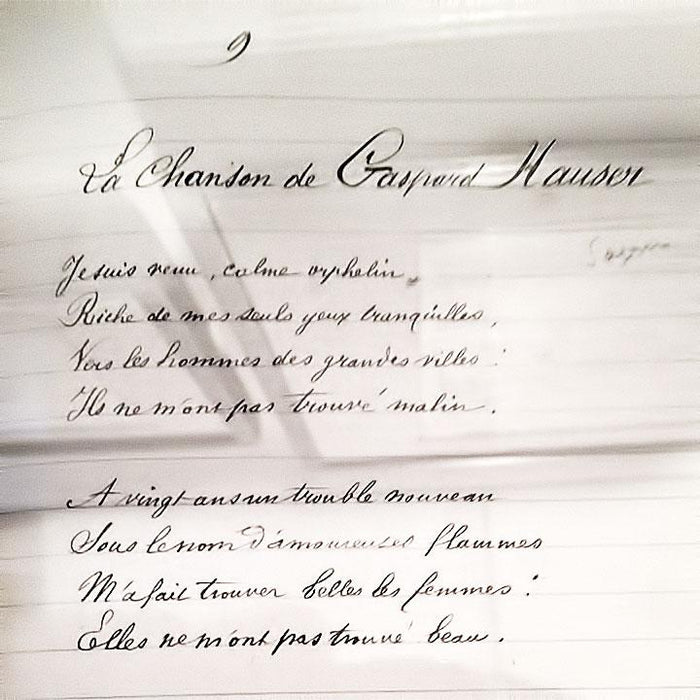 9
La Chanson de Gaspard Hauser
Je suis venu, calme orphelin,
Riche de mes seuls yeux tranquilles,
Vers les hommes des grandes villes :
Ils ne m'ont pas trouvé malin.
A vingt ans un trouble nouveau
Sous le nom d'amoureuses flammes
M'a fait trouver belles les femmes :
Elles ne m'ont pas trouvé beau.